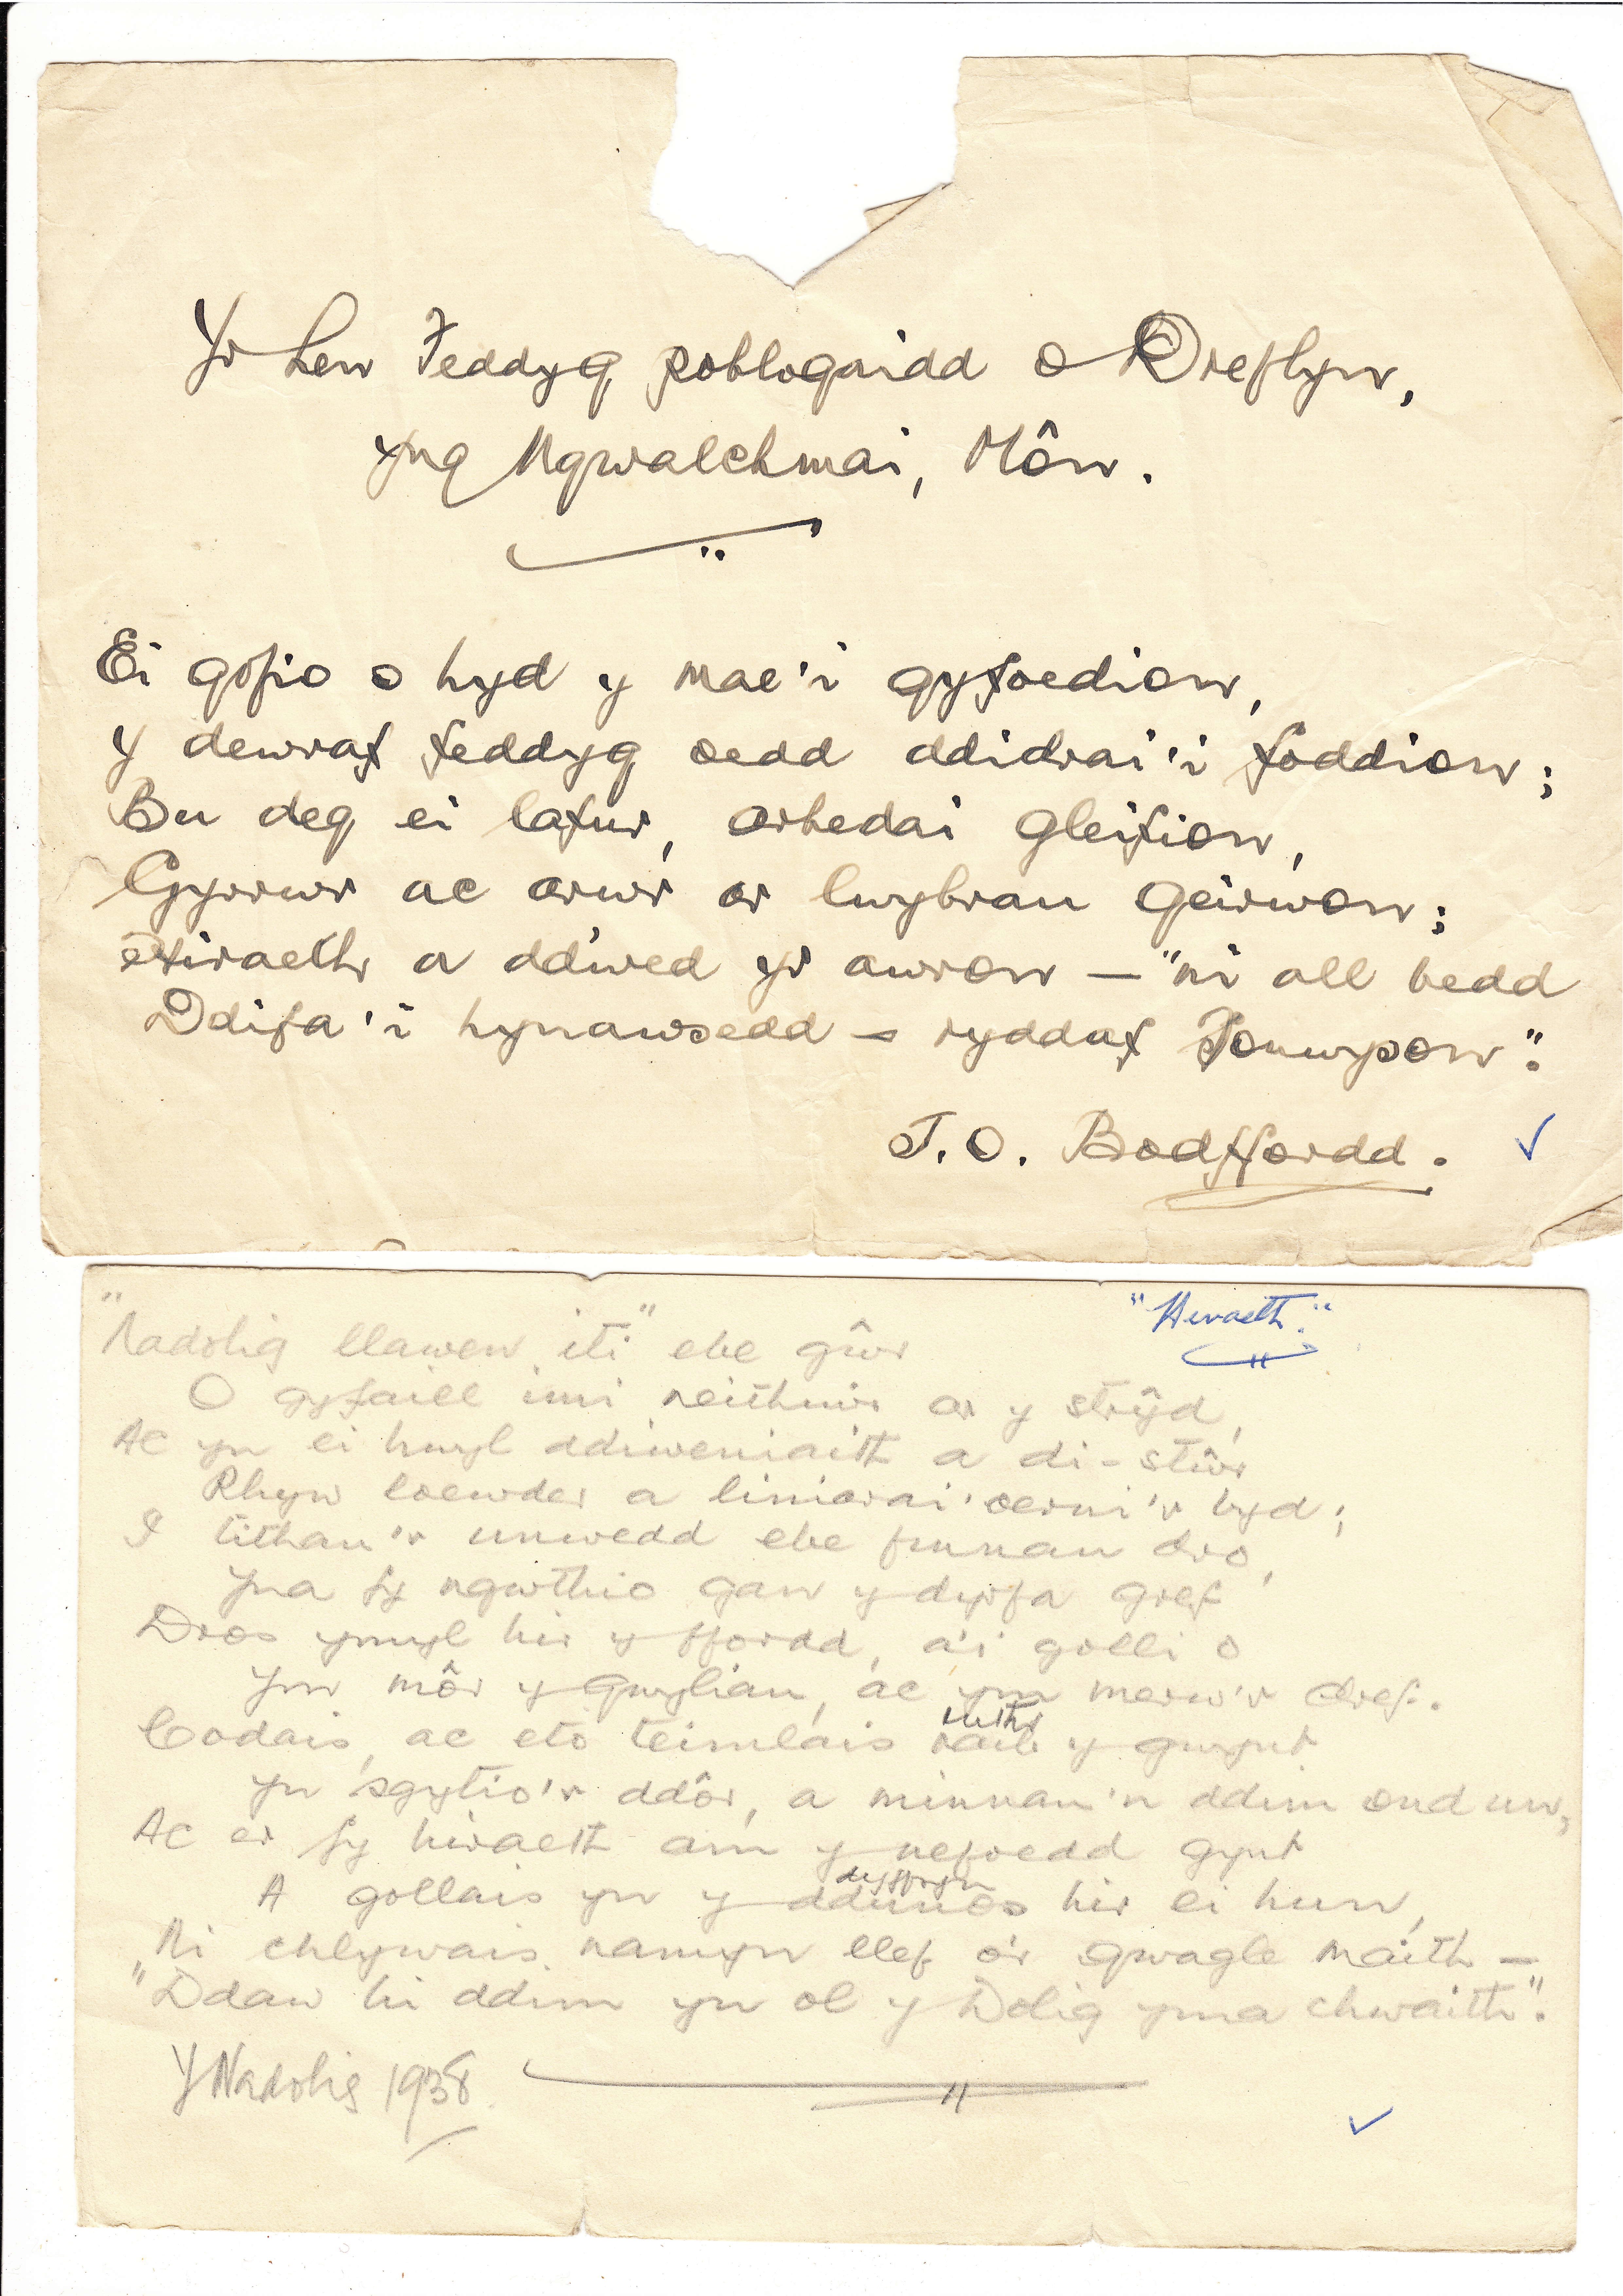 Yr hen Feddyg poblogaidd o Dreflyn,
yng Ngwalchmai, Môn.
Ei gofio o hyd y mae'i gyfoedion,
Y dewraf feddyg oedd ddidrai'i foddion;
Bu deg ei lafur, arbedai gleifion,
Gyrrwr ac arwr ar lwybrau geirwon;
Hiraeth a ddwed yr awron — "ni all bedd
Ddifa'i hynawsedd – ryddaf
T. O. Bodffordd.
"Hiraeth."
"Nadolig llawen iti" ebe gŵr
O gyfaill imi neithiwr ar y strŷd,
Ac yn ei hwyl ddiweniaith a di-stŵr
Rhyw loewder a liniarai'oerni'r byd;
I tithau'r unwedd ebe finnau dro,
Yna fy ngwthio gan y dyrfa gref
Dros ymyl hir y ffordd, a'i golli o
Ym môr y Gwyliau, ac ym merw'r dref.
Codais, ac eto teimlais ruthr y gwynt
Yn 'sgytio'r ddôr, a minnau'n ddim ond un,
Ac er fy hiraeth am y nefoedd gynt
A gollais yn y dyffryn ddunos hir ei hun,
Ni chlywais namyn llef o'r gwagle maith –
"Ddaw hi ddim yn ol y Dolig yma chwaith".
Y Nadolig 1938